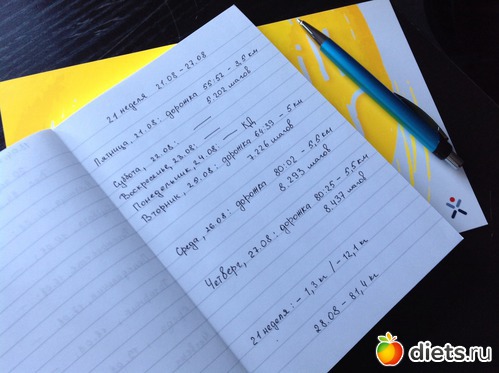 21 неделя 21.08 - 27.08
Пятница, 21.08: дорожка 55:57 - 3,5 км
6.202 шагов
Суббота, 22.08: ——
Воскресенье 23.08: ——
Понедельник, 24.08: —— КД
Вторник, 25.08: дорожка 64:39 - 5 км
7.226 шагов
Среда, 26.08: дорожка 80:02 - 5,5 км
8.293 шагов
Четверг, 27.08: дорожка 80:25 - 5,5 км
8.437 шагов
21 неделя: - 1,3 кг / - 12,1 кг
28.08 - 81,4 кг
diets.ru